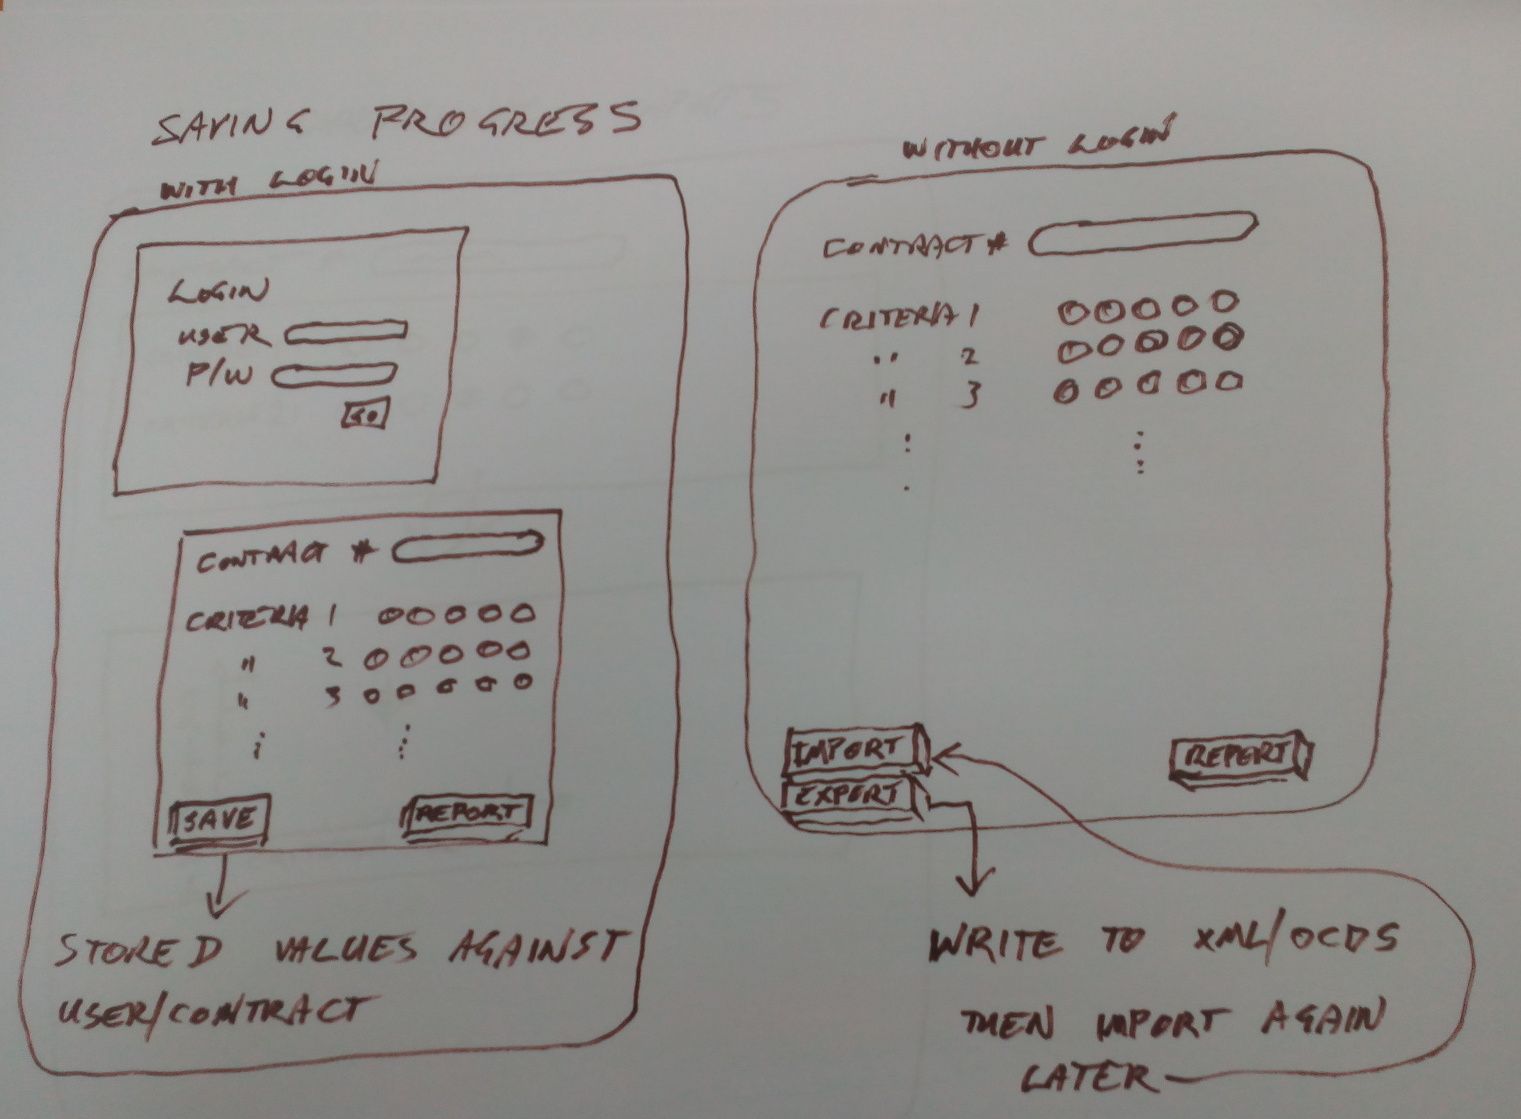 SAVING PROGRESS
WITH LOGIN
LOGIN
USER
P/W
GO
CONTRACT #
CRITERIA 1
" 2
" 3
SAVE
REPORT
STORED VALUES AGAINST
USER/CONTRACT
WITHOUT LOGIN
CONTRACT #
CRITERIA 1
" 2
" 3
IMPORT
EXPORT
REPORT
WRITE TO XML/OCDS
THEN IMPORT AGAIN
LATER